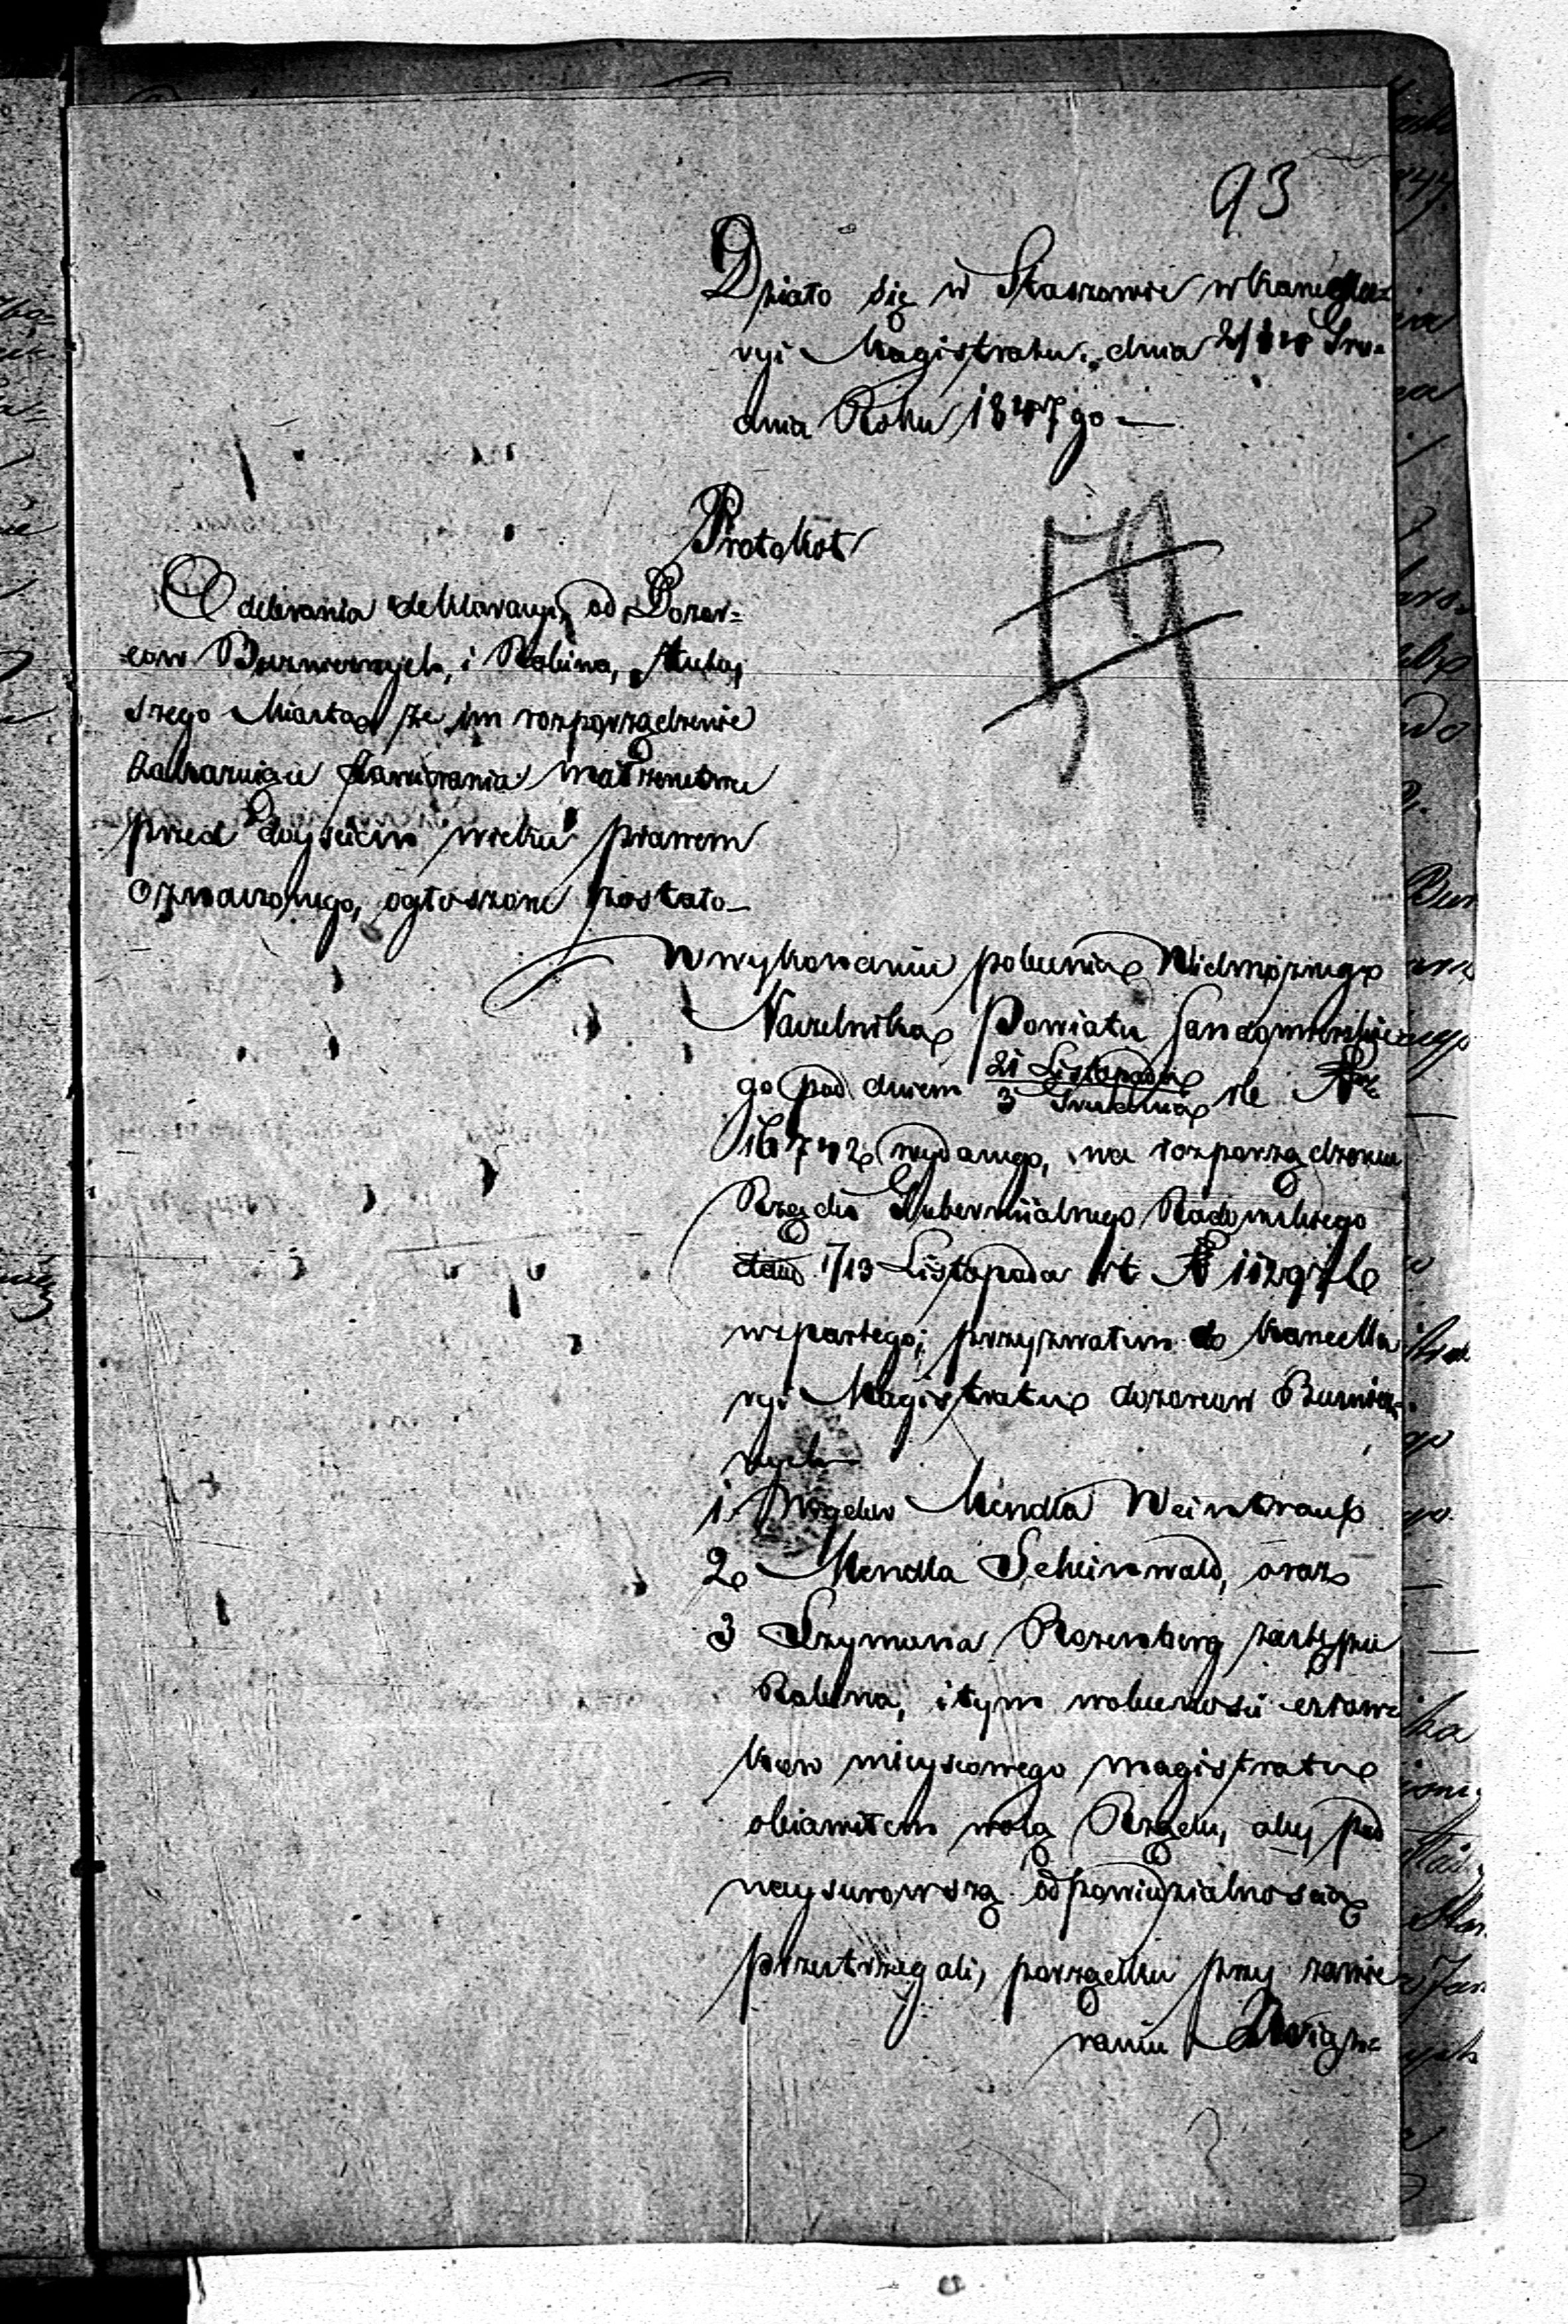 93
Działo się w Staszowie w Kancella=
ryi Magistratu dnia 2/ Gru=
dnia Roku 1847go
Protokół
Odebrania deklaracyi, od Dozor=
cow Boznicznych, i Rabina, tutey
szego Miasta, że im rozporządzenie
zakazuiące zawierania małzenstw
przed doyściem wieku prawem
oznaczonego, ogłoszone zostało
W wykonaniu polecenia Wielmożnego
Naczelnika Powiatu Sandomierskie
go pod dniem 21 Listopada / 3 Grudnia rb No
16742 wydanego, na rozporządzeniu
Rządu Gubernialnego Radomskiego
1/13 Listopada rb No
wspartego; przyzwałem do Kancella
ryi Magistratu dozorcow Buznicz=
nych
1. Mendla Weintraub
2. Mendla Scheinwald, oraz
3 Szymona Rozenberg zastępcę
Rabina, i tym w obecności członk
kow mieyscowego magistratu
obiawiłem wolą Rządu, aby pod
naysurowszą odpowiedzialnością
przestrzegali, porządku przy zawie
raniu